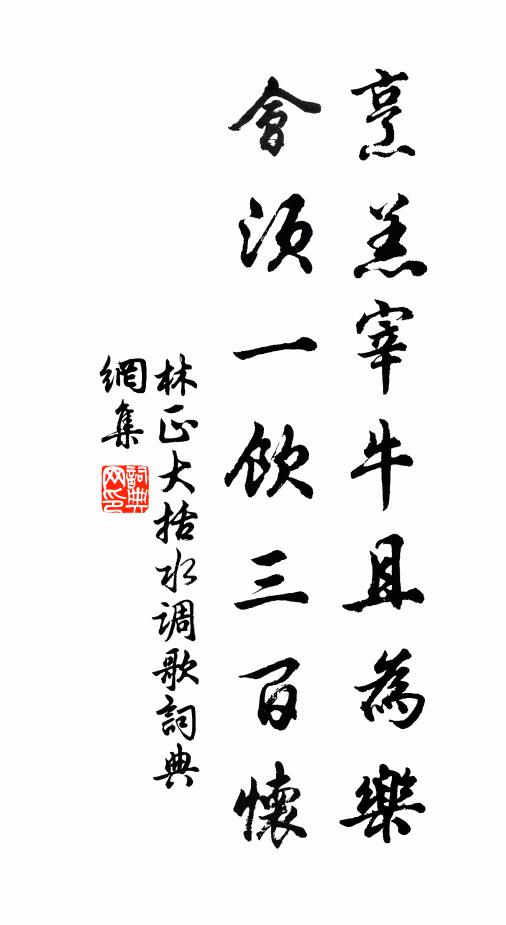 烹羔宰牛且為樂
會須一飲三百懷
林正大括水调歌詞典
網集
詞典
网印